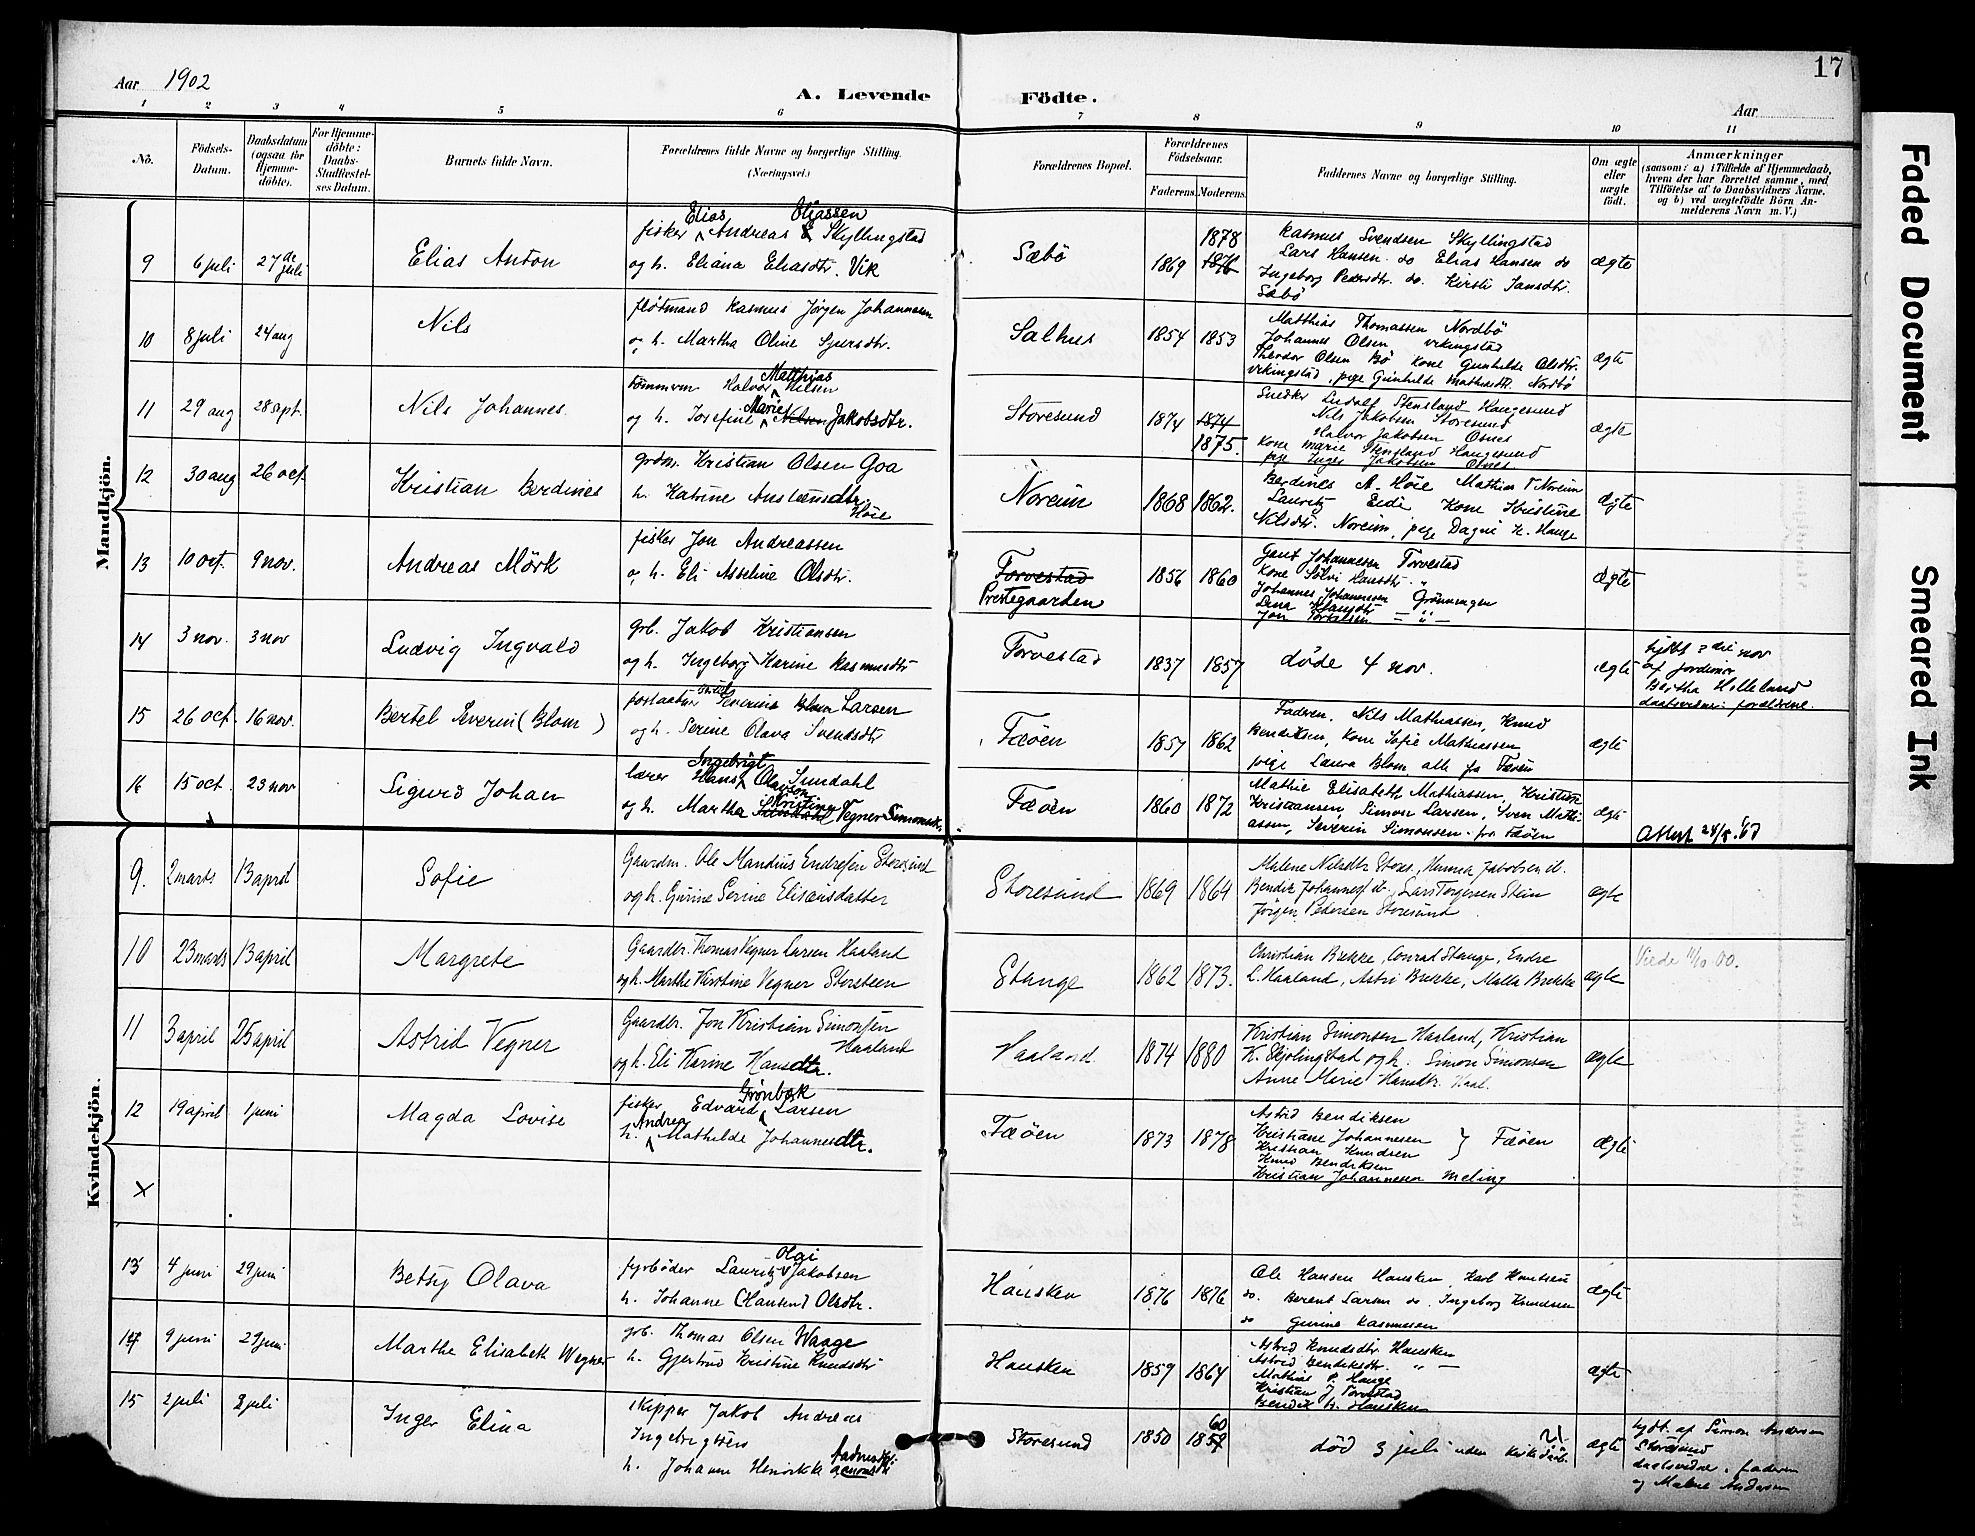 17
Aar 1902
A. Levende Födte.
Aar
1 2 3 4 5 6 7 8 9 10 11
No.
Födsels-
Datum.
Daabsdatum
(ogsaa for
Hjemme-
döbte).
For Hjemme-
döbte:
Daabs-
Stadfæstel-
ses Datum.
Barnets fulde Navn.
Forældrenes fulde Navne og borgerlige Stilling.
(Næringsvei.)
Forældrenes Bopæl.
Forældrenes
Födselsaar.
Faderens. Moderens.
Faddernes Navne og borgerlige Stilling.
Om ægte
eller
uægte
født.
Anmærkninger
(saasom: a) i Tilfælde af Hjemmedaab,
hvem der har forrettet samme, med
Tilföielse af to Daabsvidners Navne.
og b) ved uægtefödte Börn An-
melderens Navn m. V.)
Mandkjön.
9 6 juli 27de juli Elias Anton
fisker Elias Andreas Eliassen Skyllingstad
og h. Eliana Eliasdtr. Vik
Sæbö 1869 1876 1878
Rasmus Svendsen Skyllingstad
Lars Hansen do Elias Hansen do
Ingeborg Pedersdtr. do. Kirsti Jansdtr.
Sæbö
ægte
10 8 juli 24 aug Nils
fløtmand Rasmus Jørgen Johannesen
og h. Martha Oline Sjursdtr.
Salhus 1854 1853
Matthias Thomassen Nordbö
Johannes Olsen Vikingstad
Theodor Olsen Bö Kone Gunhilde Olsdtr.
Vikingstad, pige Gunhilde Mathiasdtr. Nordbö
ægte
11 29 aug 28 sept. Nils Johannes
tømmerm Halvor Matthias Nilsen
og h. Josefine Marie Nilsen Jakobsdtr.
Storesund 1874 1874 1875.
Snedker Ludolf Stensland Haugesund
Nils Jakobsen Storesund
Halvor Jakobsen Osnes
Kone Marie Stensland Haugesund
pige Inger Jakobsen Osnes
ægte
12 30 aug 26 oct. Kristian Berdines
grdm. Kristian Olsen Goa
h. Katrine Anstensdtr. Høie
Noreim 1868 1862.
Berdines A. Høie Mathias T Noreim
Lauritz Eide Kone Kristine
Nilsdtr. Noreim, pige Dagni K. Hauge
ægte
13 10 oct. 9 nov. Andreas Mörk
fisker Jon Andreassen
og h. Eli Asseline Olsdtr.
Torvestad
Prestegaarden
1856 1860
Gaut Johannesen Torvestad
Kone Solvi Hansdtr. "
Johannes Johannesen Grönningen
Lina Hansdtr — " —
Jon Torkelsen
ægte
14 3 nov. 3 nov Ludvig Ingvald
grb. Jakob Kristiansen
og h. Ingeborg Karine Rasmusdtr
Torvestad 1837 1857
døde 4 nov.
ægte
hjdbt 3die nov
af jordemor
Bertha Helleland
daabsvidner: forældrene.
15 26 oct. 16 nov. Bertel Severin (Blom)
Severin Blom Larsen
og h. Serine Olava Svendsdtr
Fæøen 1857 1862
Faderen. Nils Mathiassen, Knud
Bendiksen, Kone Sofie Mathiassen
pige Laura Blom alle fra Fæøen
ægte
16 15 oct. 23 nov Sigurd Johan
lærer Hans Ingebrigt Olausson Sundahl
og h. Martha Kristine Sundahl Vegner Simonsdtr.
Fæöen 1860 1872
Mathie Elisabeth Mathiassen, Kristian
Kristiansen, Simon Larsen, Sven Mathi-
assen, Severin Simonsen fra Fæöen
ægte
Attest 24/8. 67
Kvindekjön.
9. 2 marts 13 april Sofie
Gaardm. Ole Mandius Endresen Storesund
og h. Gurine Serine Eliseusdatter
Storesund 1869 1864
Malene Nilsdtr. Stores., Hanna Jakobsen d.
Bendix Johannes d., Lars Torgersen Stein
Jörgen Petersen Storesund
ægte
10 23 marts 13 april Margrete
Gaardbr. Thomas Vegner Larsen Haaland
og h. Marthe Kirstine Vegner Storsteen
Stange 1862 1873.
Christian Brekke, Conrad Stange, Endre
L. Haaland, Astri Brekke, Malla Brekke
ægte
Viede 11/10 00.
11 3 april 25 april Astrid Vegner
Gaardbr. Jon Kristian Simonsen Haaland
og h. Eli Karine Hansdtr.
Haaland. 1874 1880
Kristian Simonsen Haaland, Kristian
K. Skjolingstad og h. Simon Simonsen
Anne Marie Hansdtr. Haal.
ægte
12 19 april 1 juni Magda Lovise
fisker Edvard Grønbæk Larsen
h. Andrea Mathilde Johannesdtr.
Fæöen 1873 1878
Astrid Bendiksen
Kristiane Johannesen
Kristian Knudsen } Fæöen
Knud Bendiksen
Kristian Johannesen Meling
ægte
X
13 4 juni 29 juni Betsy Olava
fyrböder Lauritz Olai Jakobsen
h. Johanne (Hansen) Olsdtr.
Hausken 1876 1876
Ole Hansen Hausken, Karl Knutsen
do. Berent Larsen do. Ingeborg Knudsen
do Gurine Rasmussen
ægte
14 9 juni 29 juni Marthe Elisabeth Wegner
grb. Thomas Olsen Waage
h. Gjertrud Kristine Knudsdtr
Hausken 1859 1864
Astrid Knudsdtr. Hausken
Astrid Bendiksdtr. — " —
Mathias P. Hauge
Kristian J Torvestad
Bendik K. Hausken
ægte
15 2 juli 2 juli Inger Elina
Skipper Jakob Andreas
Ingebrigtsen
h. Johanne Henrikke
Storesund 1850 1859 60
død 3 juli uden
ægte
hjdt. af Simon Andersen
Storesund
daabsvidne. faderen
og Malene Andersen
Faded Document
Smeared Ink